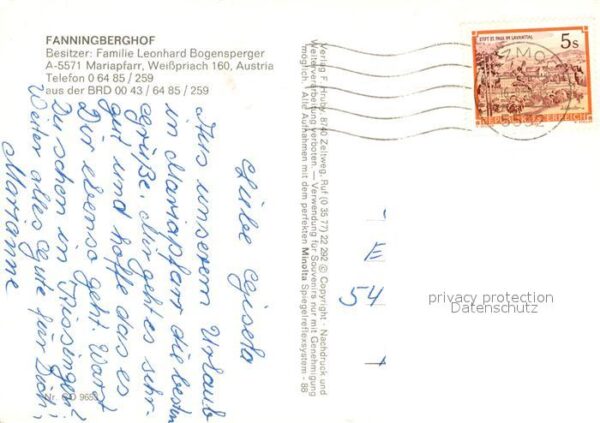 FANNINGBERGHOF
Besitzer: Familie Leonhard Bogensperger
A-5571 Mariapfarr, Weißpriach 160, Austria
Telefon 0 64 85 / 259
aus der BRD 00 43 / 64 85 / 259
Liebe Gisela
Aus unserem Urlaub
in Mariapfarr die besten
Grüße. Mir geht es sehr
gut und hoffe das es
Dir ebenso geht. Warst
Du schon in Kissingen?
Weiter alles Gute für Dich
Marianne
Nr. 9653
Verlag F. Hruby, 8740 Zeltweg, Ruf (0 35 77) 22 292 © Copyright - Nachdruck und
Weiterverarbeitung verboten. — Verwendung für Souvenirs nur mit Genehmigung
möglich. Alle Aufnahmen mit dem perfekten Minolta Spiegelreflexsystem - 88
STIFT ST. PAUL IM LAVANTTAL
5s
REPUBLIK ÖSTERREICH
5592
E
54
privacy protection
Datenschutz